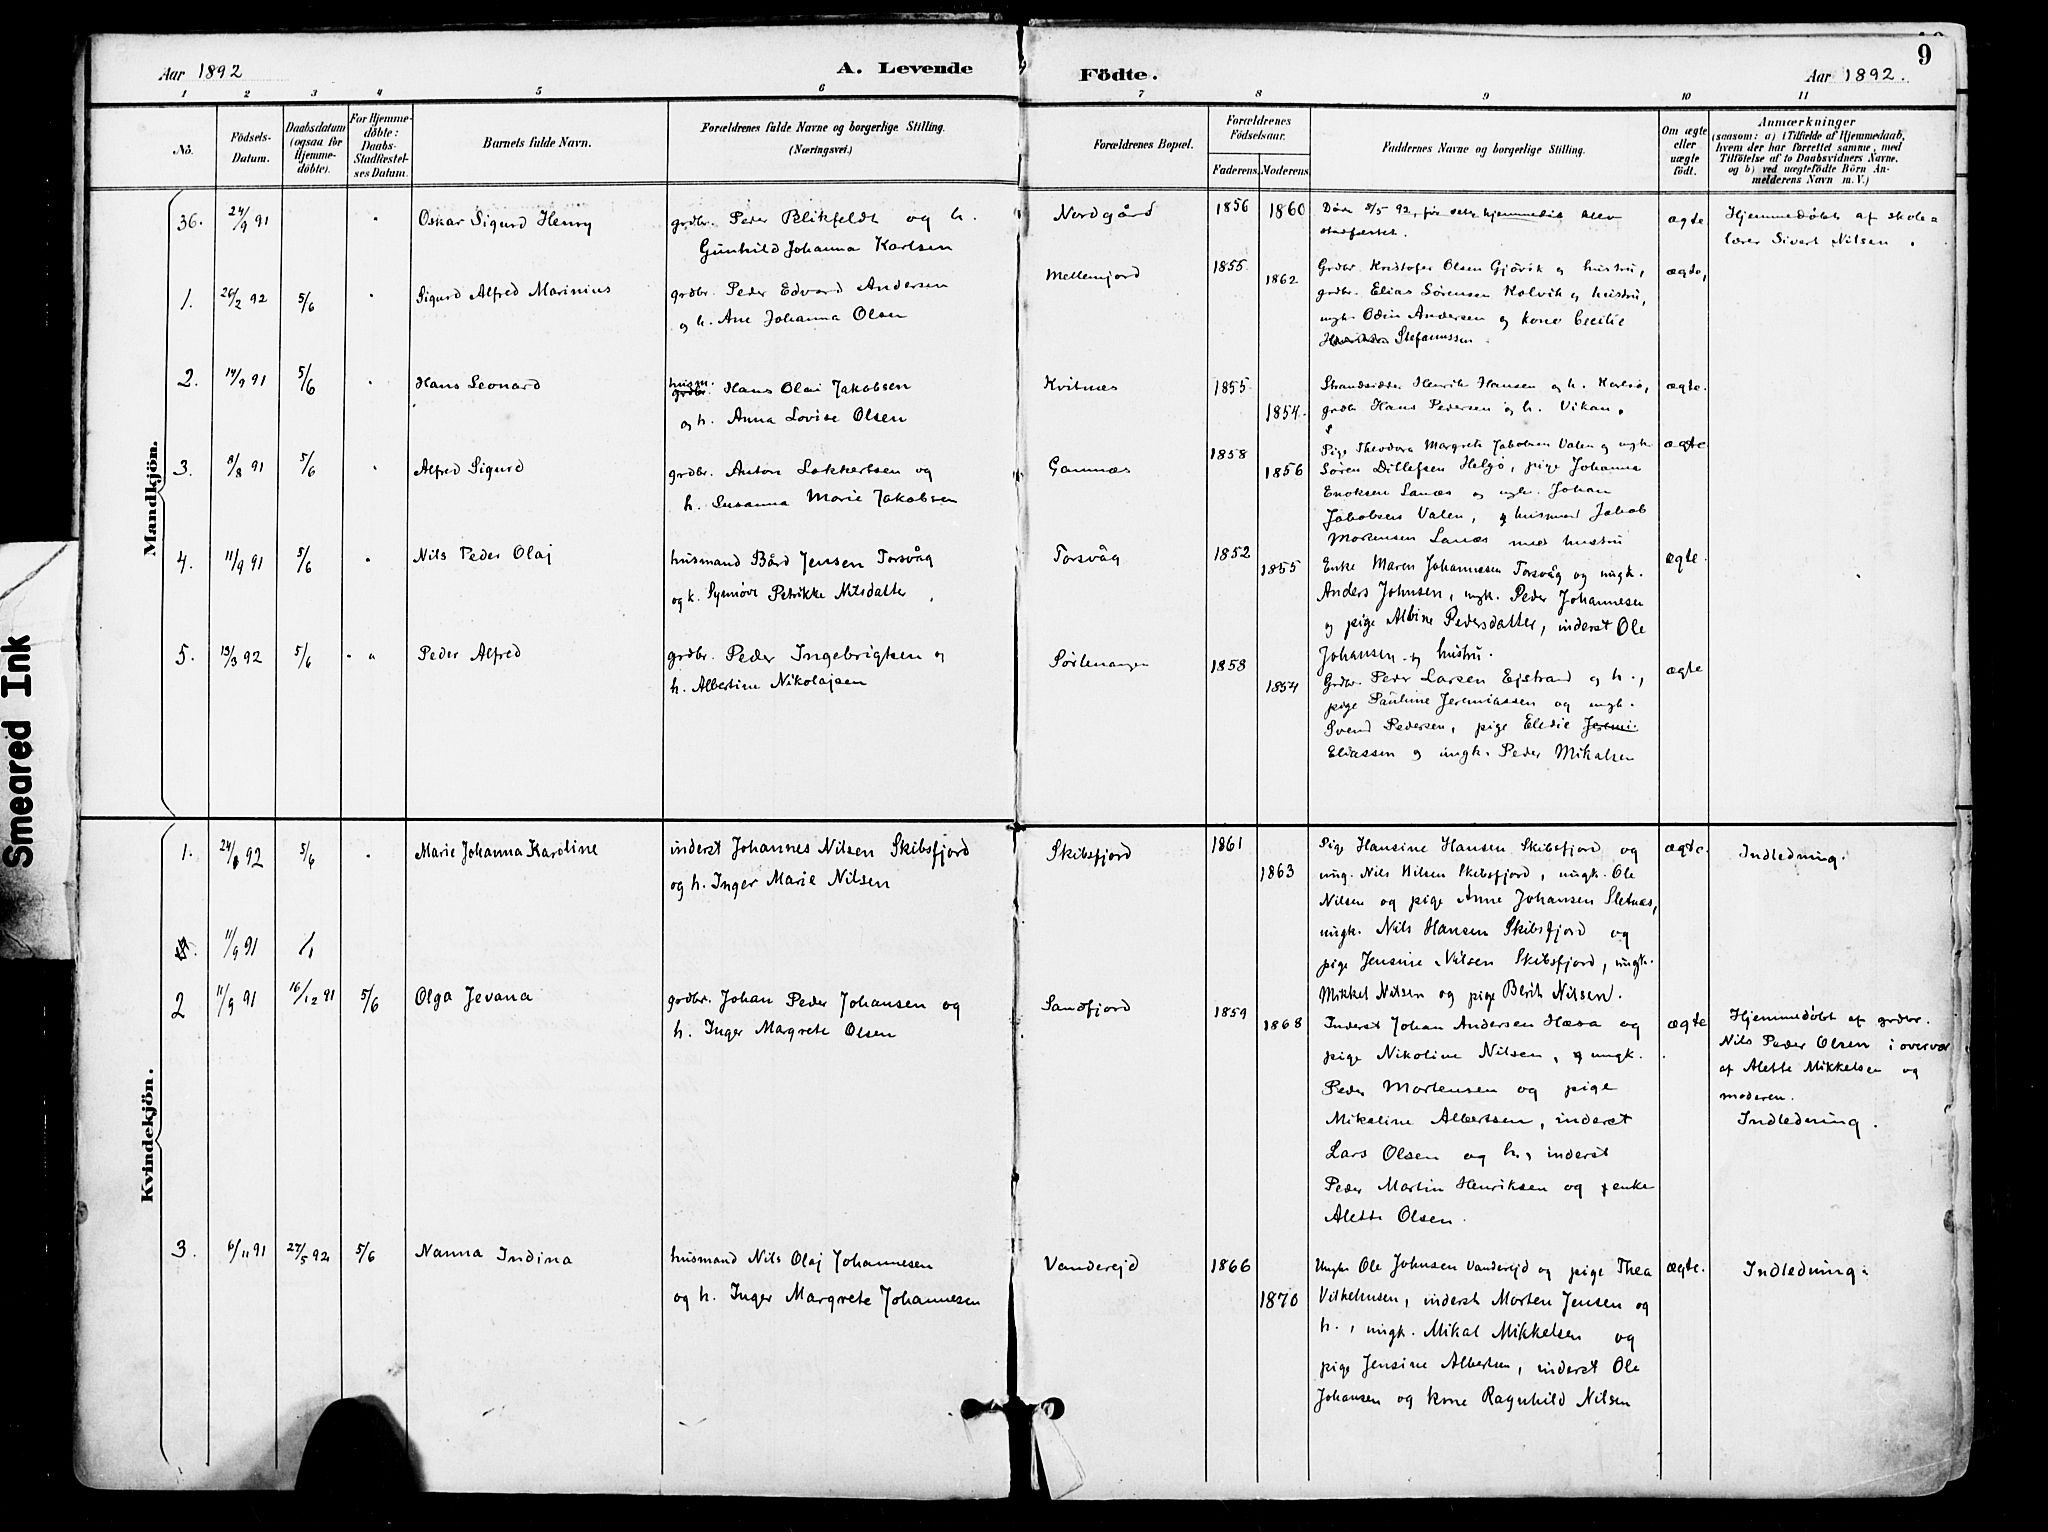 Smeared Ink
Aar 1892
A. Levende
Födte.
Aar 1892.
9
1 2 3 4 5 6 7 8 9 10 11
No.
Födsels-
Datum.
Daabsdatum
(ogsaa for
Hjemme-
døbte).
For Hjemme-
døbte:
Daabs-
Stadfæstel-
ses Datum.
Barnets fulde Navn.
Forældrenes fulde Navne og borgerlige Stilling.
(Næringsvei.)
Forældrenes Bopæl.
Forældrenes
Födselsaar.
Faderens. Moderens.
Faddernes Navne og borgerlige Stilling.
Om ægte
eller
uægte
født.
Anmærkninger
(saasom: a) i Tilfælde af Hjemmedaab,
hvem der har forrettet samme, med
Tilføielse af to Daabsvidners Navne.
og b) ved uægtefødte Börn An-
melderens Navn m. V.)
Mandkjön.
36. 24/9 91 " Oskar Sigurd Henry
grdbr. Peder Blikfeldt og h.
Gunhild Johanna Karlsen
Nordgård 1856 1860
Døde 8/5 92, før hjemmedåb blev
stadfæstet.
ægte
Hjemmedøbt af skole=
lærer Sivert Nilsen.
1. 26/2 92 5/6 " Sigurd Alfred Marinius
grdbr. Peder Edvard Andersen
og h. Ane Johanna Olsen
Mellemjord 1855 1862
Grdbr. Kristofer Olsen Gjövik og hustru,
grdbr. Elias Sørensen Kalvik og hustru,
ungk. Odin Andersen og kone Cecilie
Stefanussen.
ægte,
2. 14/9 91 5/6 " Hans Leonard
husm.
grdbr. Hans Olai Jakobsen
og h. Anna Lovise Olsen
Kvitnæs 1855 1854
Strandsidder Henrik Hansen og h. Karlsø,
grdbr Hans Pedersen og h. Vikan.
ægte.
3. 8/8 91 5/6 " Alfred Sigurd
grdbr. Anton Lokkertsen og
h. Susanna Marie Jakobsen
Gamnæs 1858 1856
Pige Theodora Margrete Jakobsen Valen og ungk.
Søren Dillefsen Helgö, pige Johanna
Enoksen Lanæs og ungk. Johan
Jakobsen Valen, og husmand Jakob
Mortensen Lanæs med hustru
ægte
4. 11/9 91 5/6 " Nils Peder Olaj
husmand Bård Jensen Torsvåg
og k. Synnöve Petrikke Nilsdatter.
Torsvåg 1852 1855
Enke Maren Johannesen Torsvåg og ungk.
Anders Johnsen, ungk. Peder Johannesen
og pige Albine Pedersdatter, inderst Ole
Johansen og hustru.
ægte.
5. 13/3 92 5/6 " " Peder Alfred
grdbr. Peder Ingebrigtsen og
h. Albertine Nikolajsen
Sörlenangen 1858 1854
Grdbr. Peder Larsen Ejstrand og h.,
pige Pauline Jeremiassen og ungk.
Svend Pedersen, pige Eledie Jeremi-
Eliassen og ungk. Peder Mikalsen
ægte
Kvindekjön.
1. 24/8 92 5/6 " Marie Johanna Karoline
inderst Johannes Nilsen Skibsfjord
og h. Inger Marie Nilsen
Skibsfjord 1861 1863
Pige Hansine Hansen Skibsfjord og
ung. Nils Nilsen Skibsfjord, ungk. Ole
Nilsen og pige Anne Johansen Sletnæs,
ungk. Nils Hansen Skibsfjord og
pige Jensine Nilsen Skibsfjord, ungk.
Mikkel Nilsen og pige Berit Nilsen.
ægte.
Indledning.
11/9 91
2 11/9 91 16/12 91 5/6 Olga Jevana
grdbr. Johan Peder Johansen og
h. Inger Margrete Olsen
Sandfjord 1859 1868
Inderst Johan Andersen Hæsa og
pige Nikoline Nilsen, og ungk.
Peder Mortensen og pige
Mikaline Albertsen, inderst
Lars Olsen og h., inderst
Peder Martin Henriksen og enke
Alette Olsen.
ægte
Hjemmedøbt af grdbr.
Nils Peder Olsen i overvær
af Alette Mikkelsen og
moderen.
Indledning.
3. 6/11 91 27/5 92 5/6 Nanna Indina
husmand Nils Olaj Johannesen
og h. Inger Margrete Johannesen
Vanderejd 1866 1870
Ungk. Ole Johnsen Vanderejd og pige Thea
Vilhelmsen, inderst Morten Jensen og
h., ungk. Mikal Mikkelsen og
pige Jensine Albertsen, inderst Ole
Johansen og kone Ragnhild Nilsen
ægte.
Indledning.